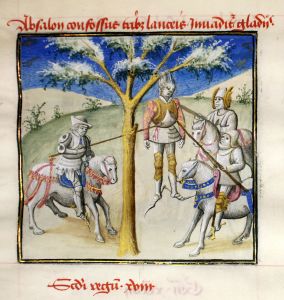 Absalon confossus tribz lanceis Inuadit' gladijs
Scdi regu͂ xviij